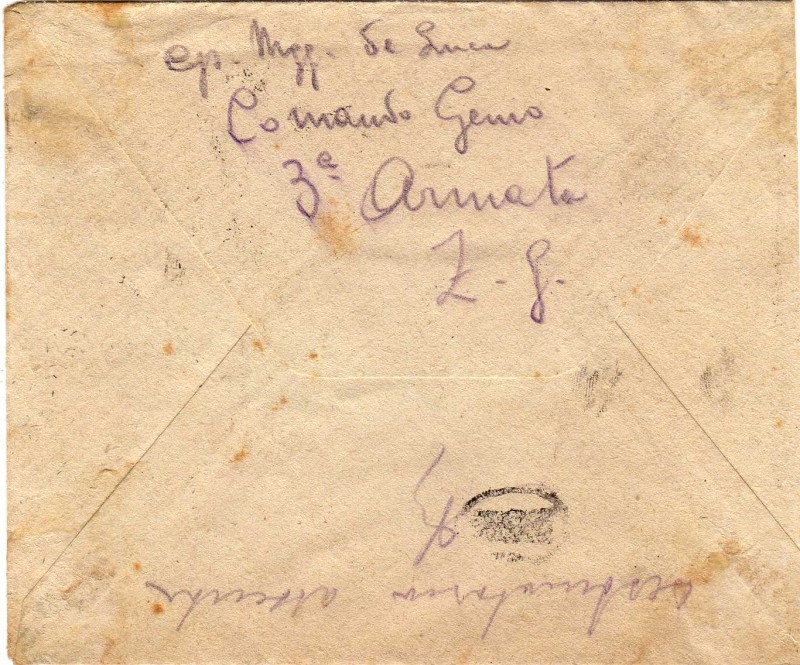 Cap. Magg. De Luca
Comando Genio
3ª Armata
Z. G.
destinatario assente